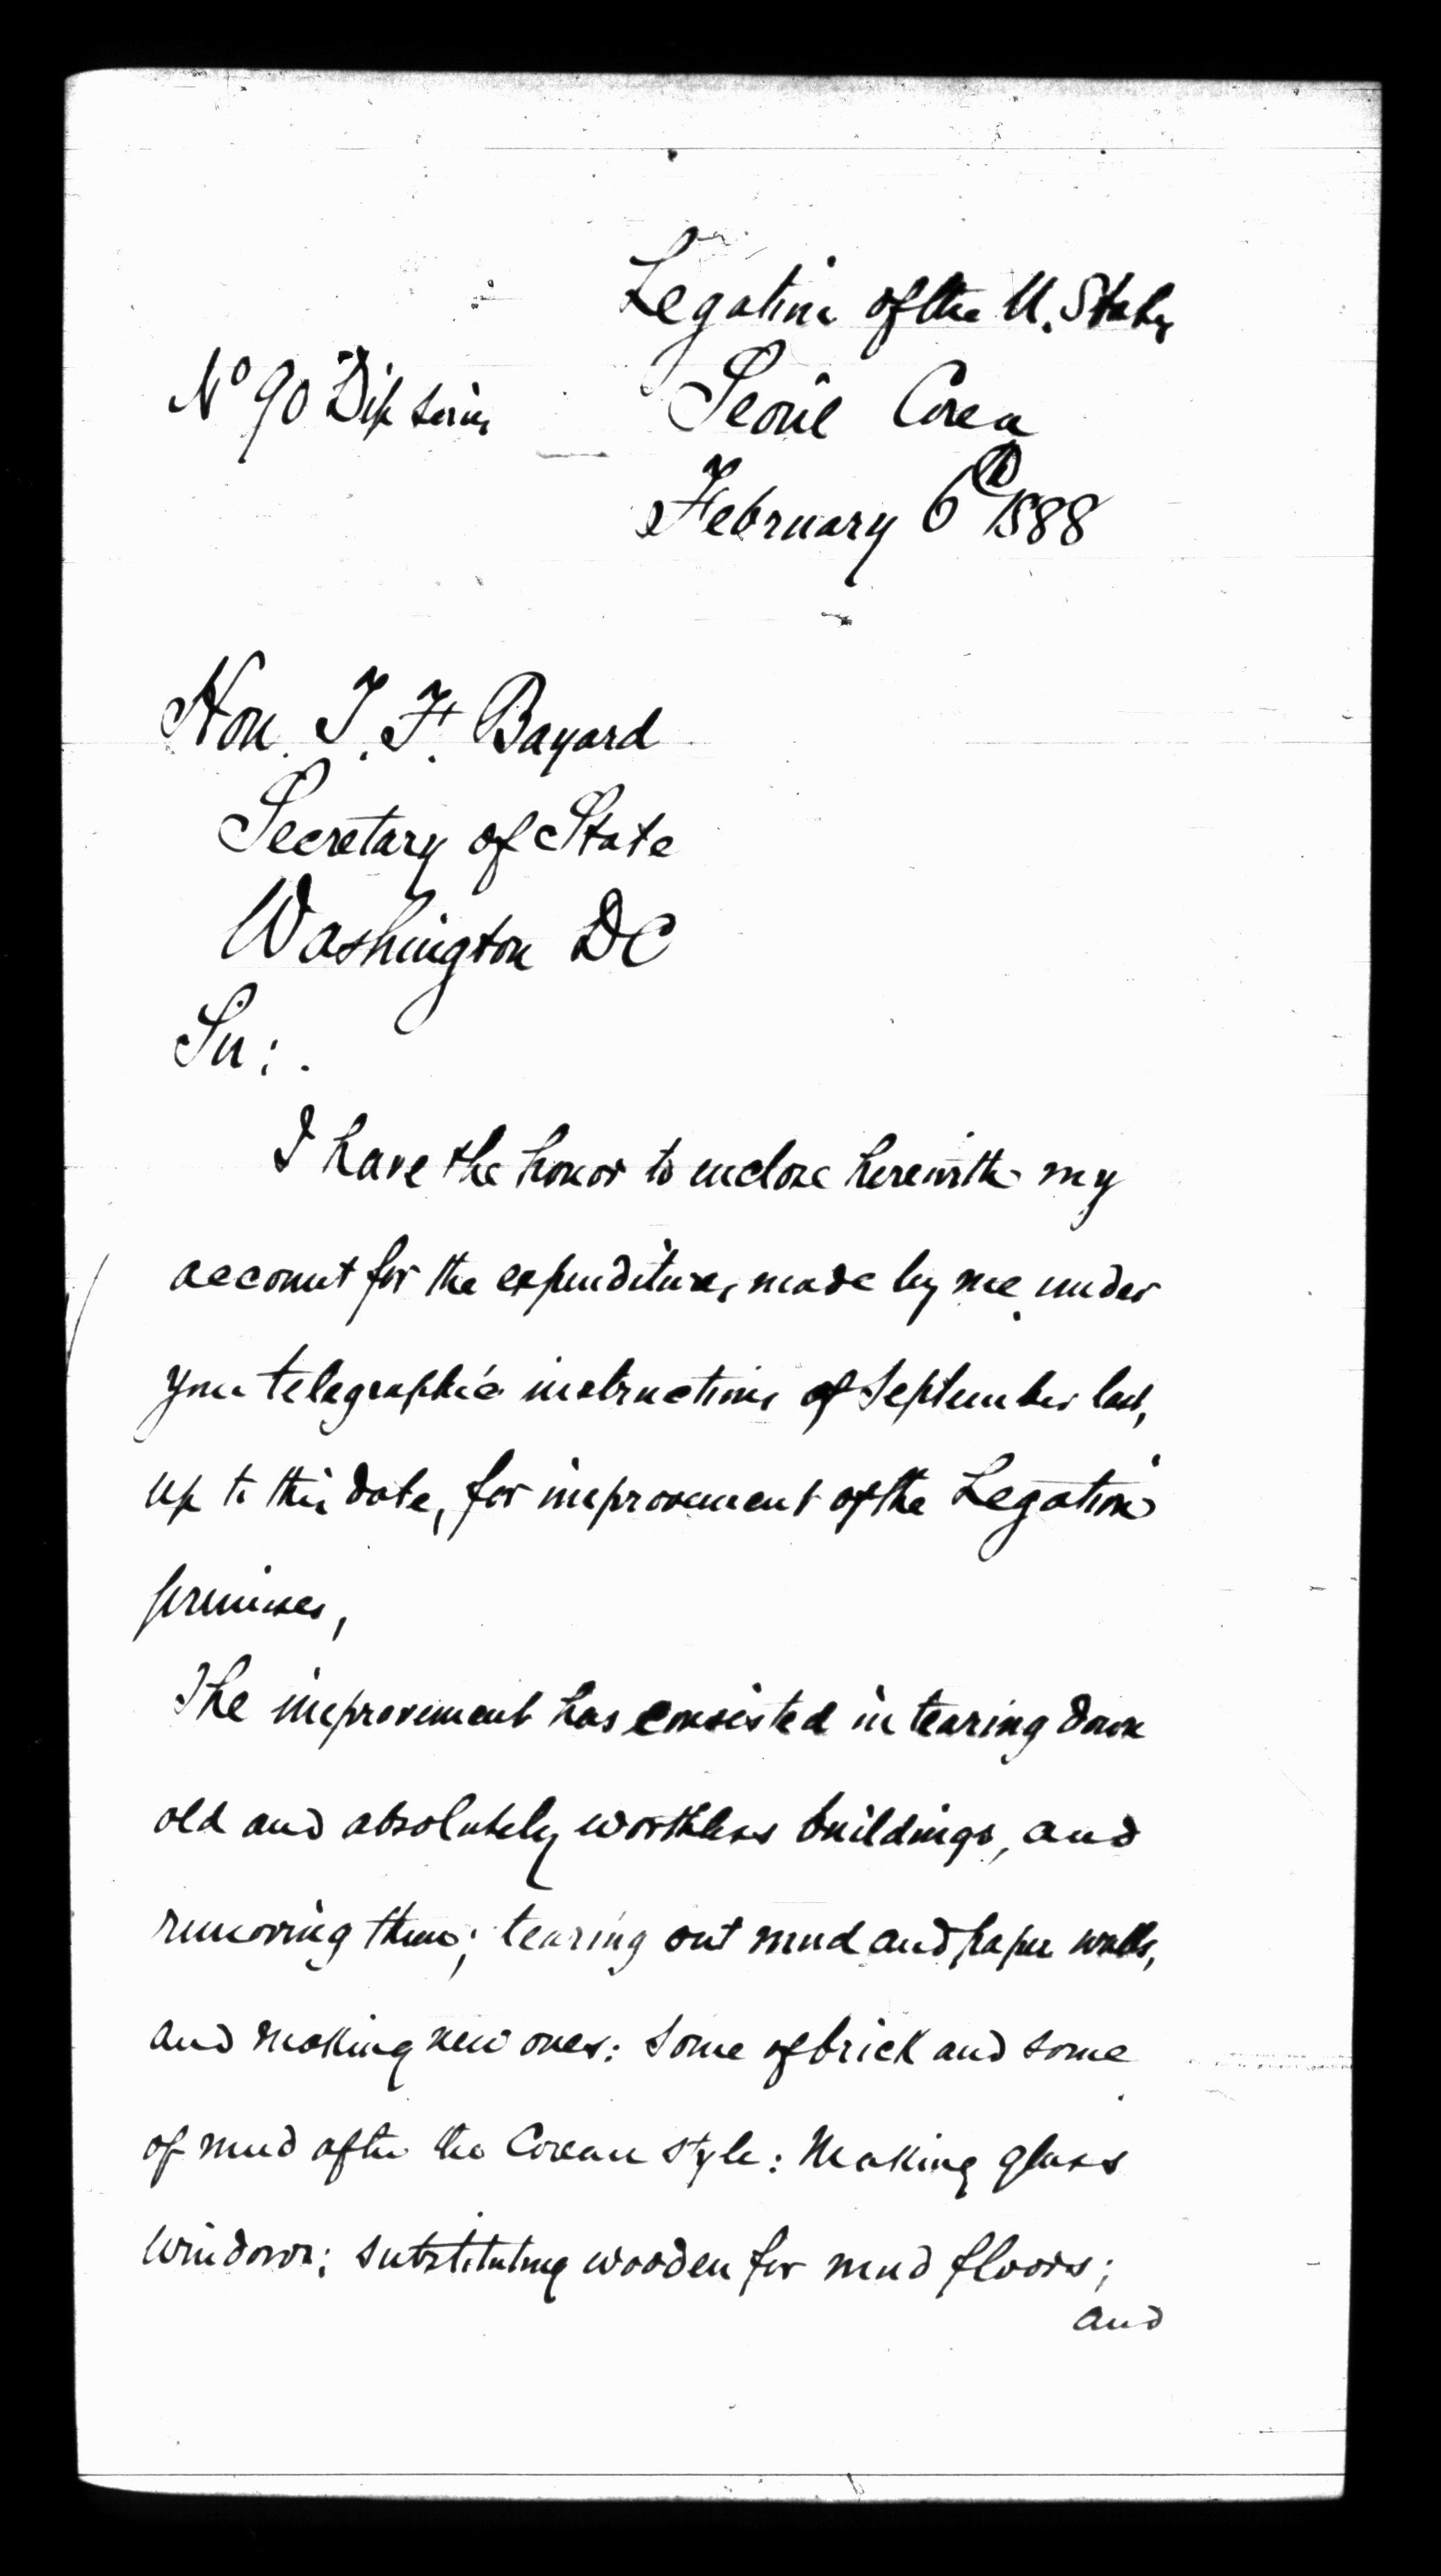 Legation of the U. States
No 90 Dip series
Seoul Corea
February 6th 1888
Hon. T. F. Bayard
Secretary of State
Washington DC
Sir:.
I have the honor to inclose herewith my
account for the expenditures made by me under
your telegraphic instructions of September last,
up to this date, for improvement of the Legation
premises,
The improvement has consisted in tearing down
old and absolutely worthless buildings, and
removing them; tearing out mud and paper walls,
and making new ones: some of brick and some
of mud after the Corean style: Making glass
windows; substituting wooden for mud floors;
and